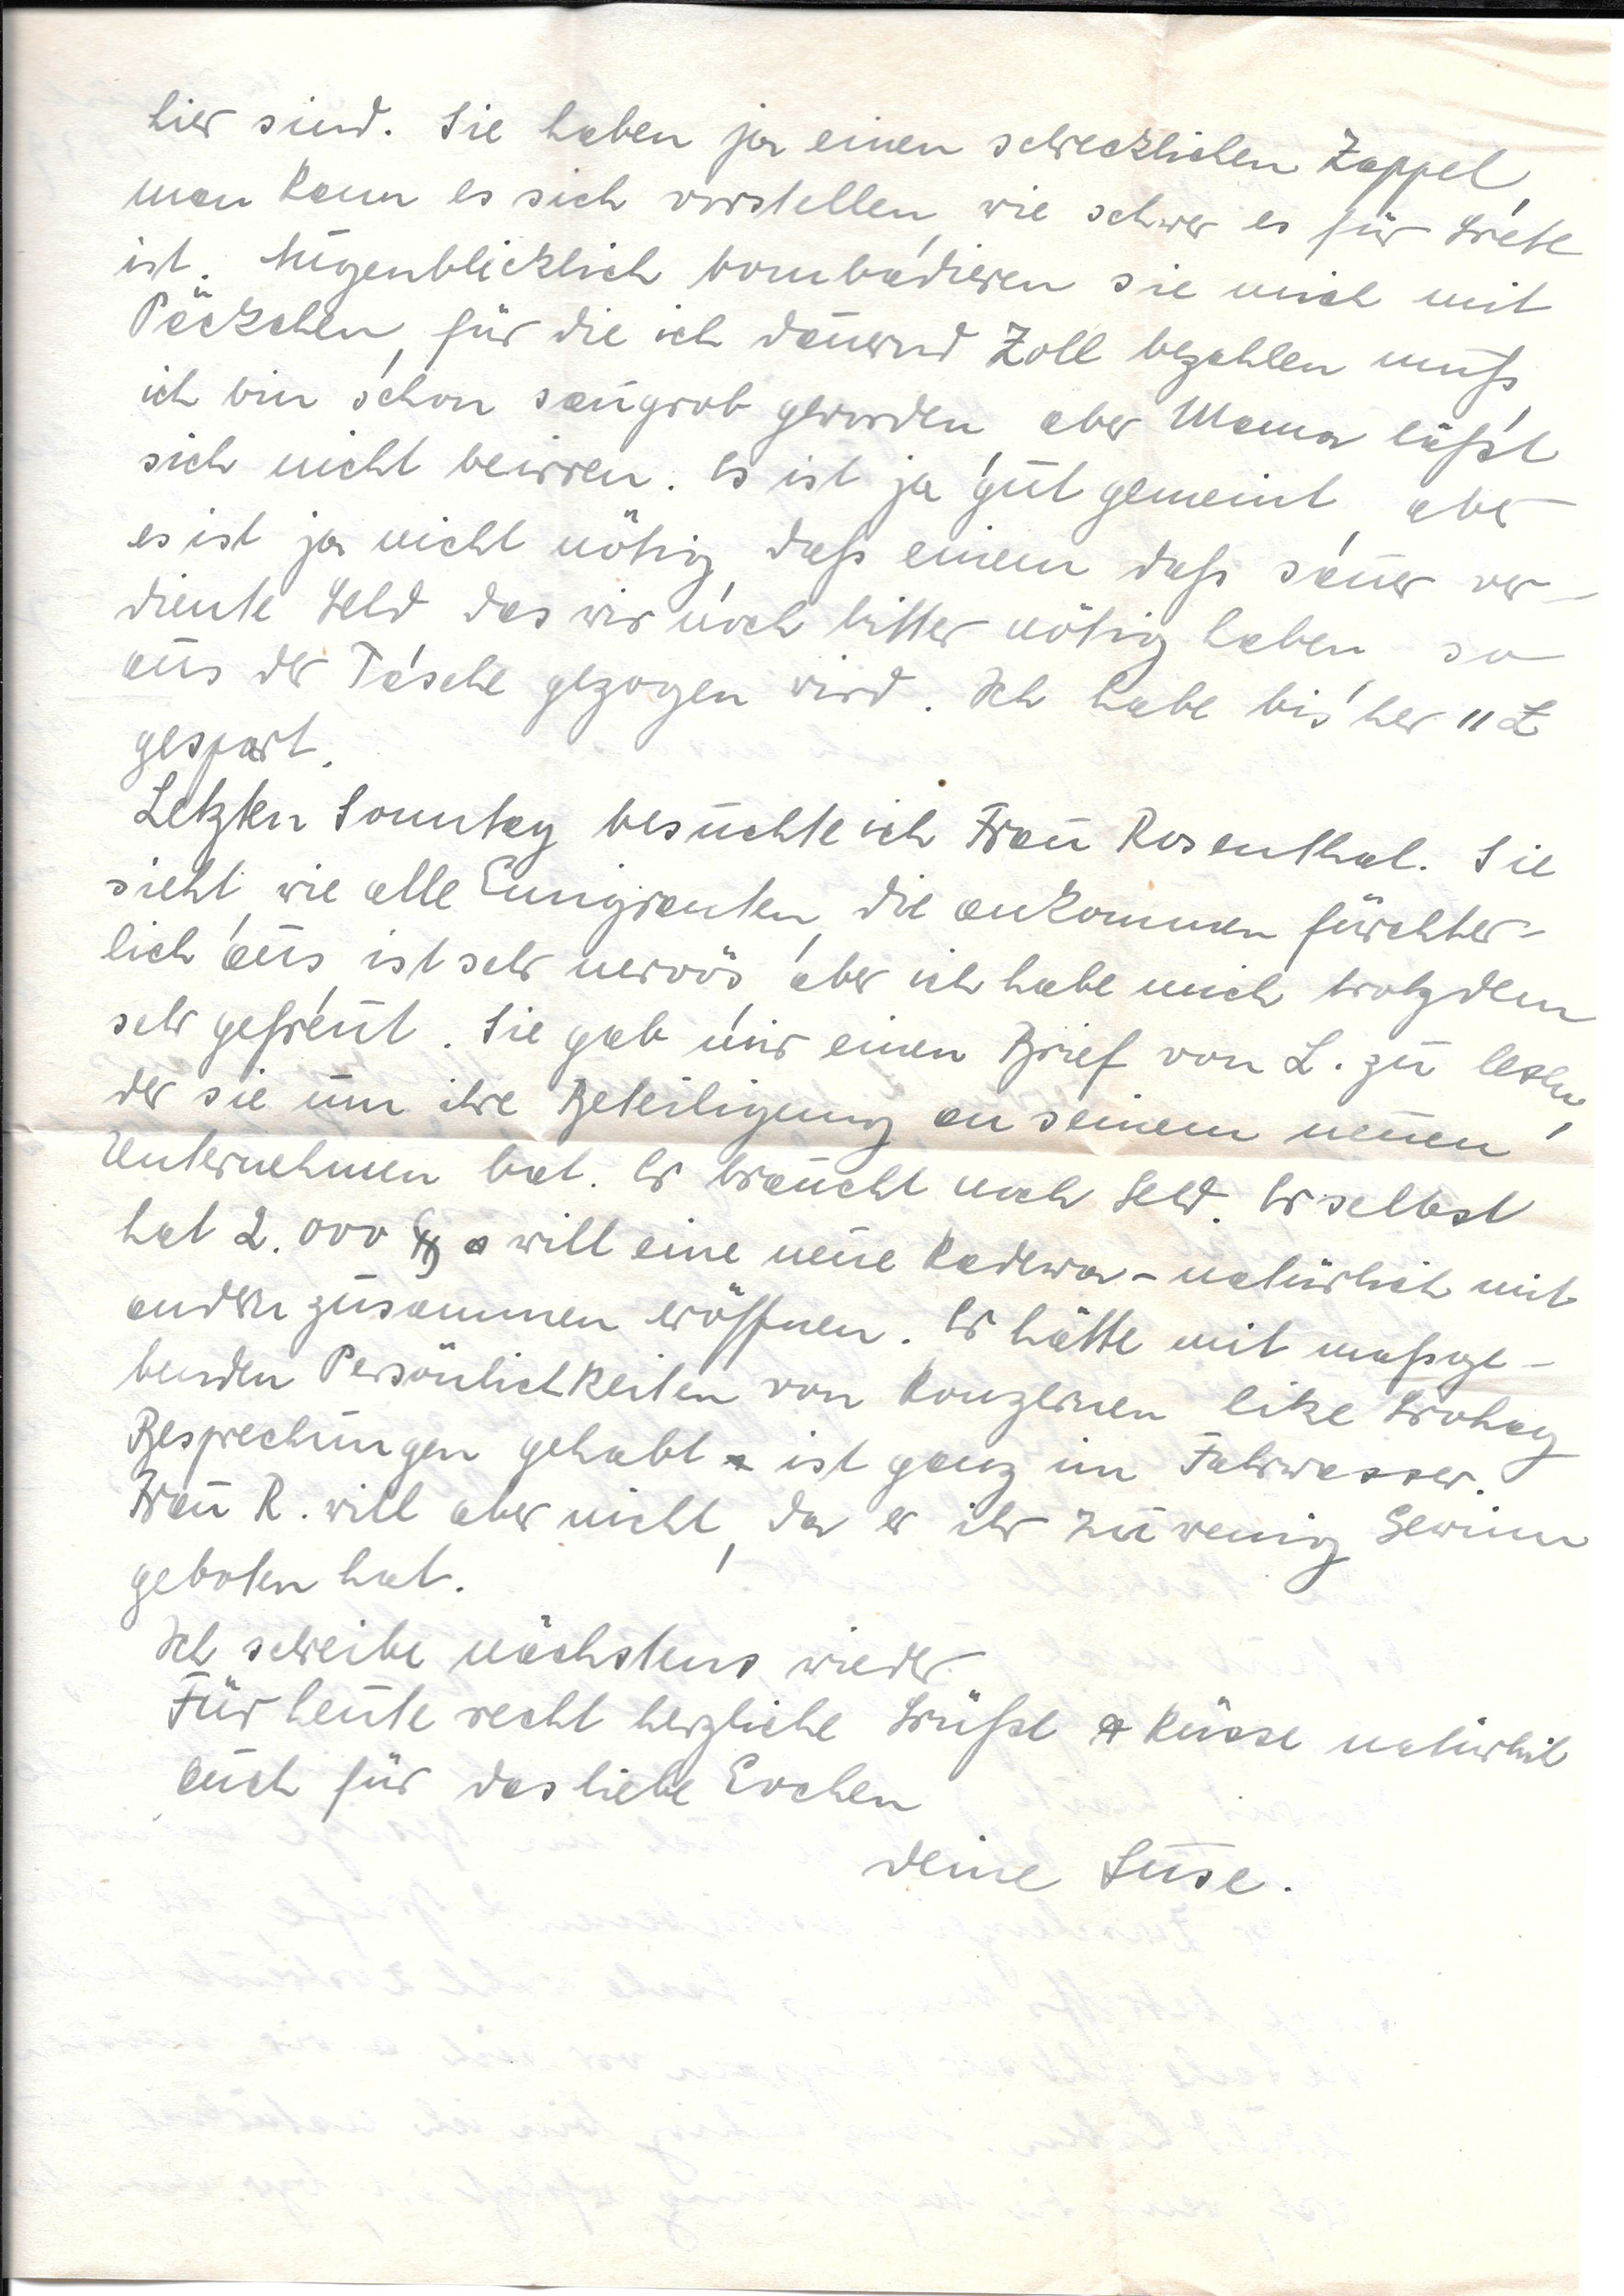 hier sind. Sie haben ja einen schrecklichen Zappel,
man kann es sich vorstellen, wie schwer es für Grete
ist. Augenblicklich bombadieren sie mich mit
Päckchen, für die ich dauernd Zoll bezahlen muß,
ich bin schon saugrob geworden, aber Mama läßt
sich nicht beirren. Es ist ja gut gemeint, aber
es ist ja nicht nötig, daß einem daß sauer ver-
diente Geld das wir noch bitter nötig haben, so
aus der Tasche gezogen wird. Ich habe bisher 11 £
gespart.
Letzten Sonntag besuchte ich Frau Rosenthal. Sie
sieht, wie alle Emigranten, die ankommen fürchter-
lich aus, ist sehr nervös, aber ich habe mich trotzdem
sehr gefreut. Sie gab mir einen Brief von L. zu lesen,
der sie um ihre Beteiligung an seinem neuen
Unternehmen bat. Er braucht noch Geld. Er selbst
hat 2.000 & will eine neue Kadewa - natürlich mit
andern zusammen eröffnen. Er hätte mit maßge-
benden Persönlichkeiten von Konzernen like Grohag
Besprechungen gehabt & ist ganz im Fahrwasser.
Frau R. will aber nicht, da er ihr zu wenig Gewinn
geboten hat.
Ich schreibe nächstens wieder.
Für heute recht herzliche Grüße & Küsse natürlich
auch für das liebe Evchen
Deine Suse.